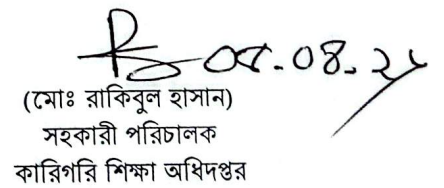 (মোঃ রাকিবুল হাসান)
সহকারী পরিচালক
কারিগরি শিক্ষা অধিদপ্তর